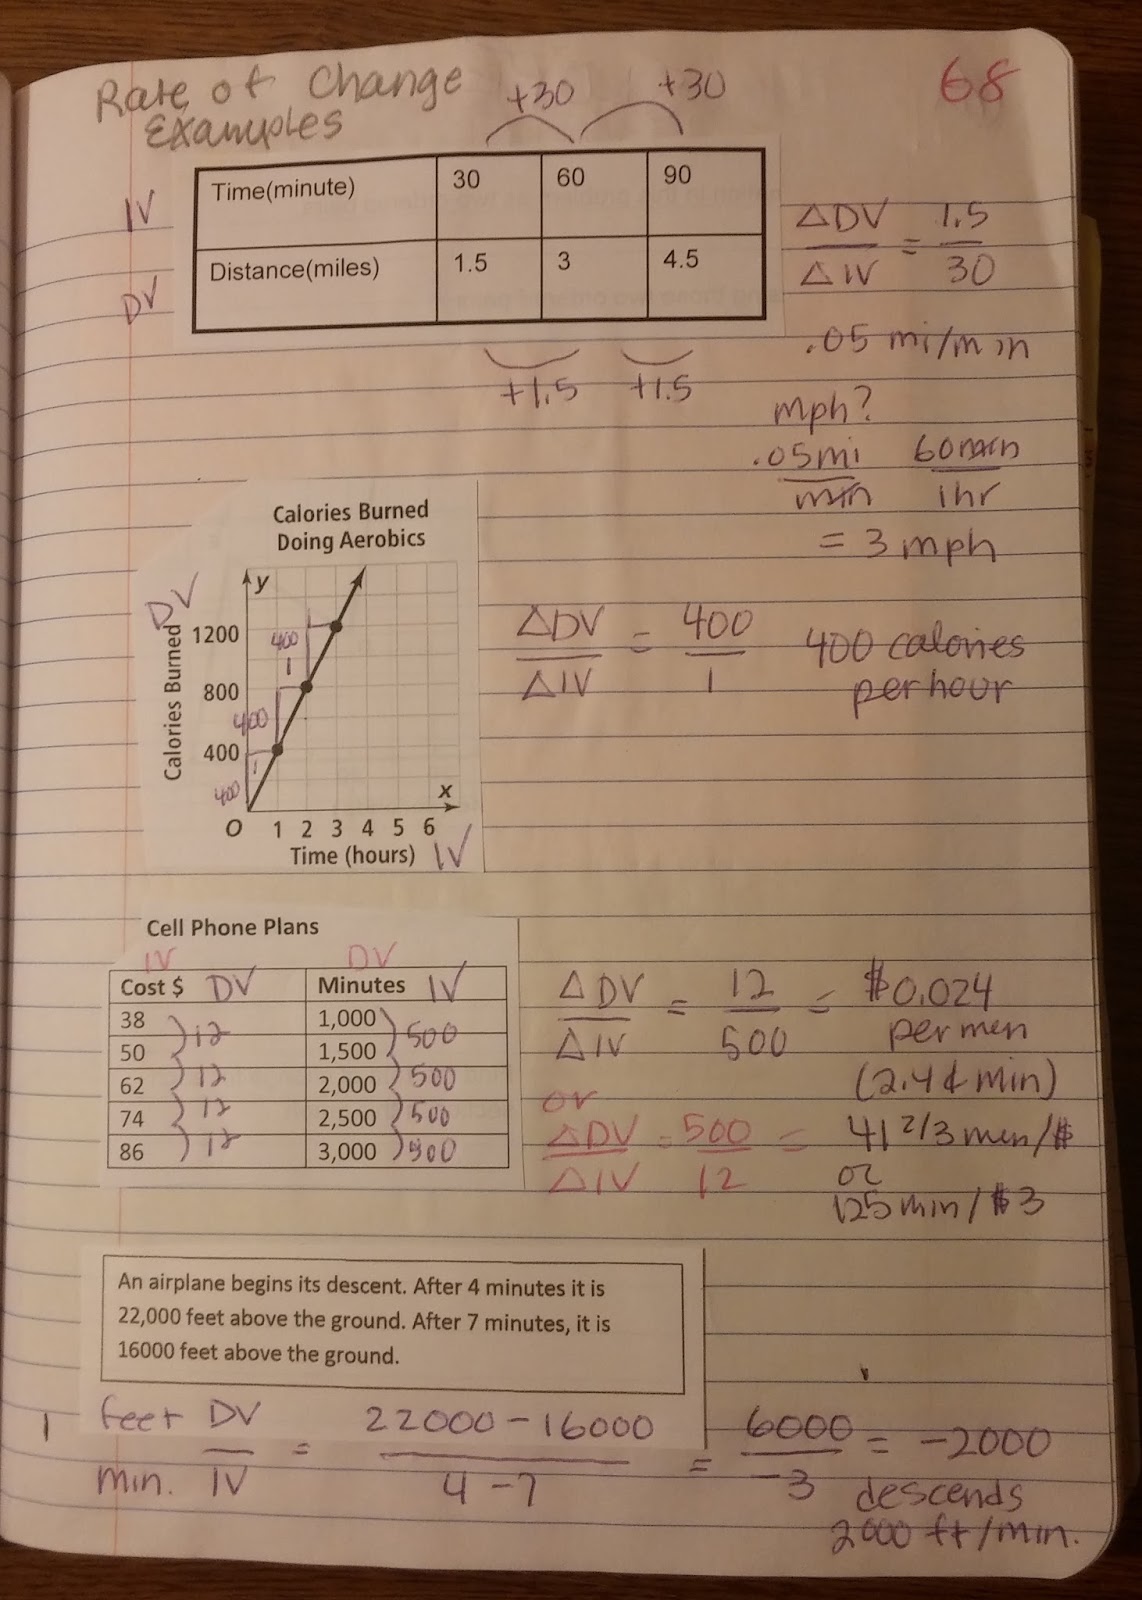 Rate of Change
Examples
68
+30 +30
IV Time(minute) 30 60 90
DV Distance(miles) 1.5 3 4.5
+1.5 +1.5
ΔDV/ΔIV = 1.5/30
.05 mi/min
mph?
.05mi/min 60min/1hr
= 3 mph
Calories Burned
Doing Aerobics
DV
Calories Burned
y
1200
800
400
400 1
400 1
400
O 1 2 3 4 5 6
x
Time (hours) IV
ΔDV/ΔIV = 400/1 400 calories
per hour
Cell Phone Plans
IV DV
Cost $ DV Minutes IV
38 1,000
12 500
50 1,500
12 500
62 2,000
12 500
74 2,500
12 500
86 3,000
ΔDV/ΔIV = 12/500 = $0.024
per min
(2.4¢ min)
or
ΔDV/ΔIV = 500/12 = 41 2/3 min/$
or
125 min/$3
An airplane begins its descent. After 4 minutes it is
22,000 feet above the ground. After 7 minutes, it is
16000 feet above the ground.
feet/min. DV/IV = 22000-16000/4-7 = 6000/-3 = -2000
descends
2000 ft/min.